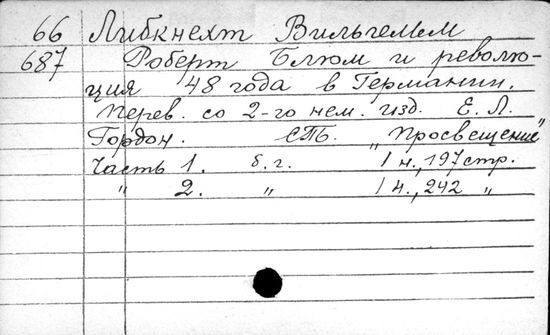 66 Либкнехт Вильгельм
687 Роберт Блюм и револю-
ция 48 года в Германии.
Перев. со 2-го нем. изд. Е. Л.
Гордон. СПБ. „Просвещение"
Часть 1. б. г. 1 н., 197 стр.
" 2. " 1 н., 242 "